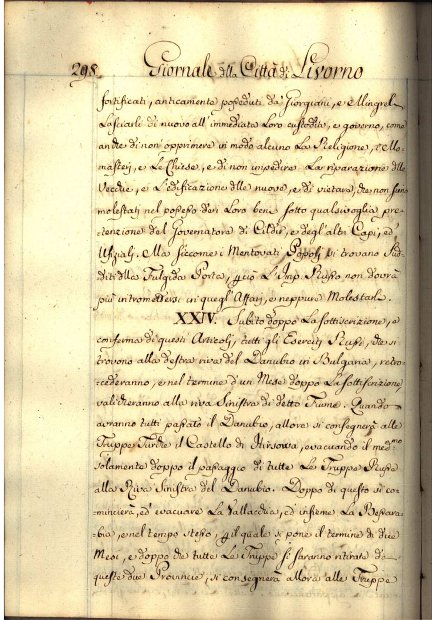 298. Giornale dlla Città di Livorno
fortificati, anticamente posseduti da' Giorgiani, e Mingrelj
Lasciarli di nuovo all' immediata Loro custodia, e governo, come
anche di non opprimere in modo alcuno La Religione, i Mo-
nasterj, e Le Chiese, e di non impedire La riparazione dlle
Vecchie, e L'edificazione dlle nuove, e di vietare, che non sieno
molestati nel possesso dei Loro beni sotto qualsivoglia pre-
tenzione del Governatore di Cildir, e degl'altri Capi, ed
Ufizialj. Ma siccome i Mentovati Popolj si trovano Sud-
diti dlla Fulgida Porta, p ciò L'Imp. Russo non dovrà
più intromettersi in quegl'Affari, e neppure Molestarli.
XXIV. Subito doppo La sottoscrizione, e
conferma di questi Articolj, tutti gli Eserciti Russi, che si
trovono alla destra riva del Danubio in Bulgaria, retro-
cederanno, e nel termine d'un Mese doppo La sottoscrizione
valicheranno alla riva Sinistra di detto Fiume. Quando
avranno tutti passato il Danubio, allora si consegnerà alle
Truppe Turche il Castello di Hirsowa, evacuando il medmo
solamente doppo il passaggio di tutte Le Truppe Russe
alla Riva Sinistra del Danubio. Doppo di questo si co-
mincierà, ed' evacuare La Vallacchia, ed insieme La Bessara-
bia, e nel tempo stesso, p il quale si pone il termine di due
Mesi, e doppo che tutte Le Truppe si saranno ritirate da
queste due Provincie, si consegnerà allora alle Truppe